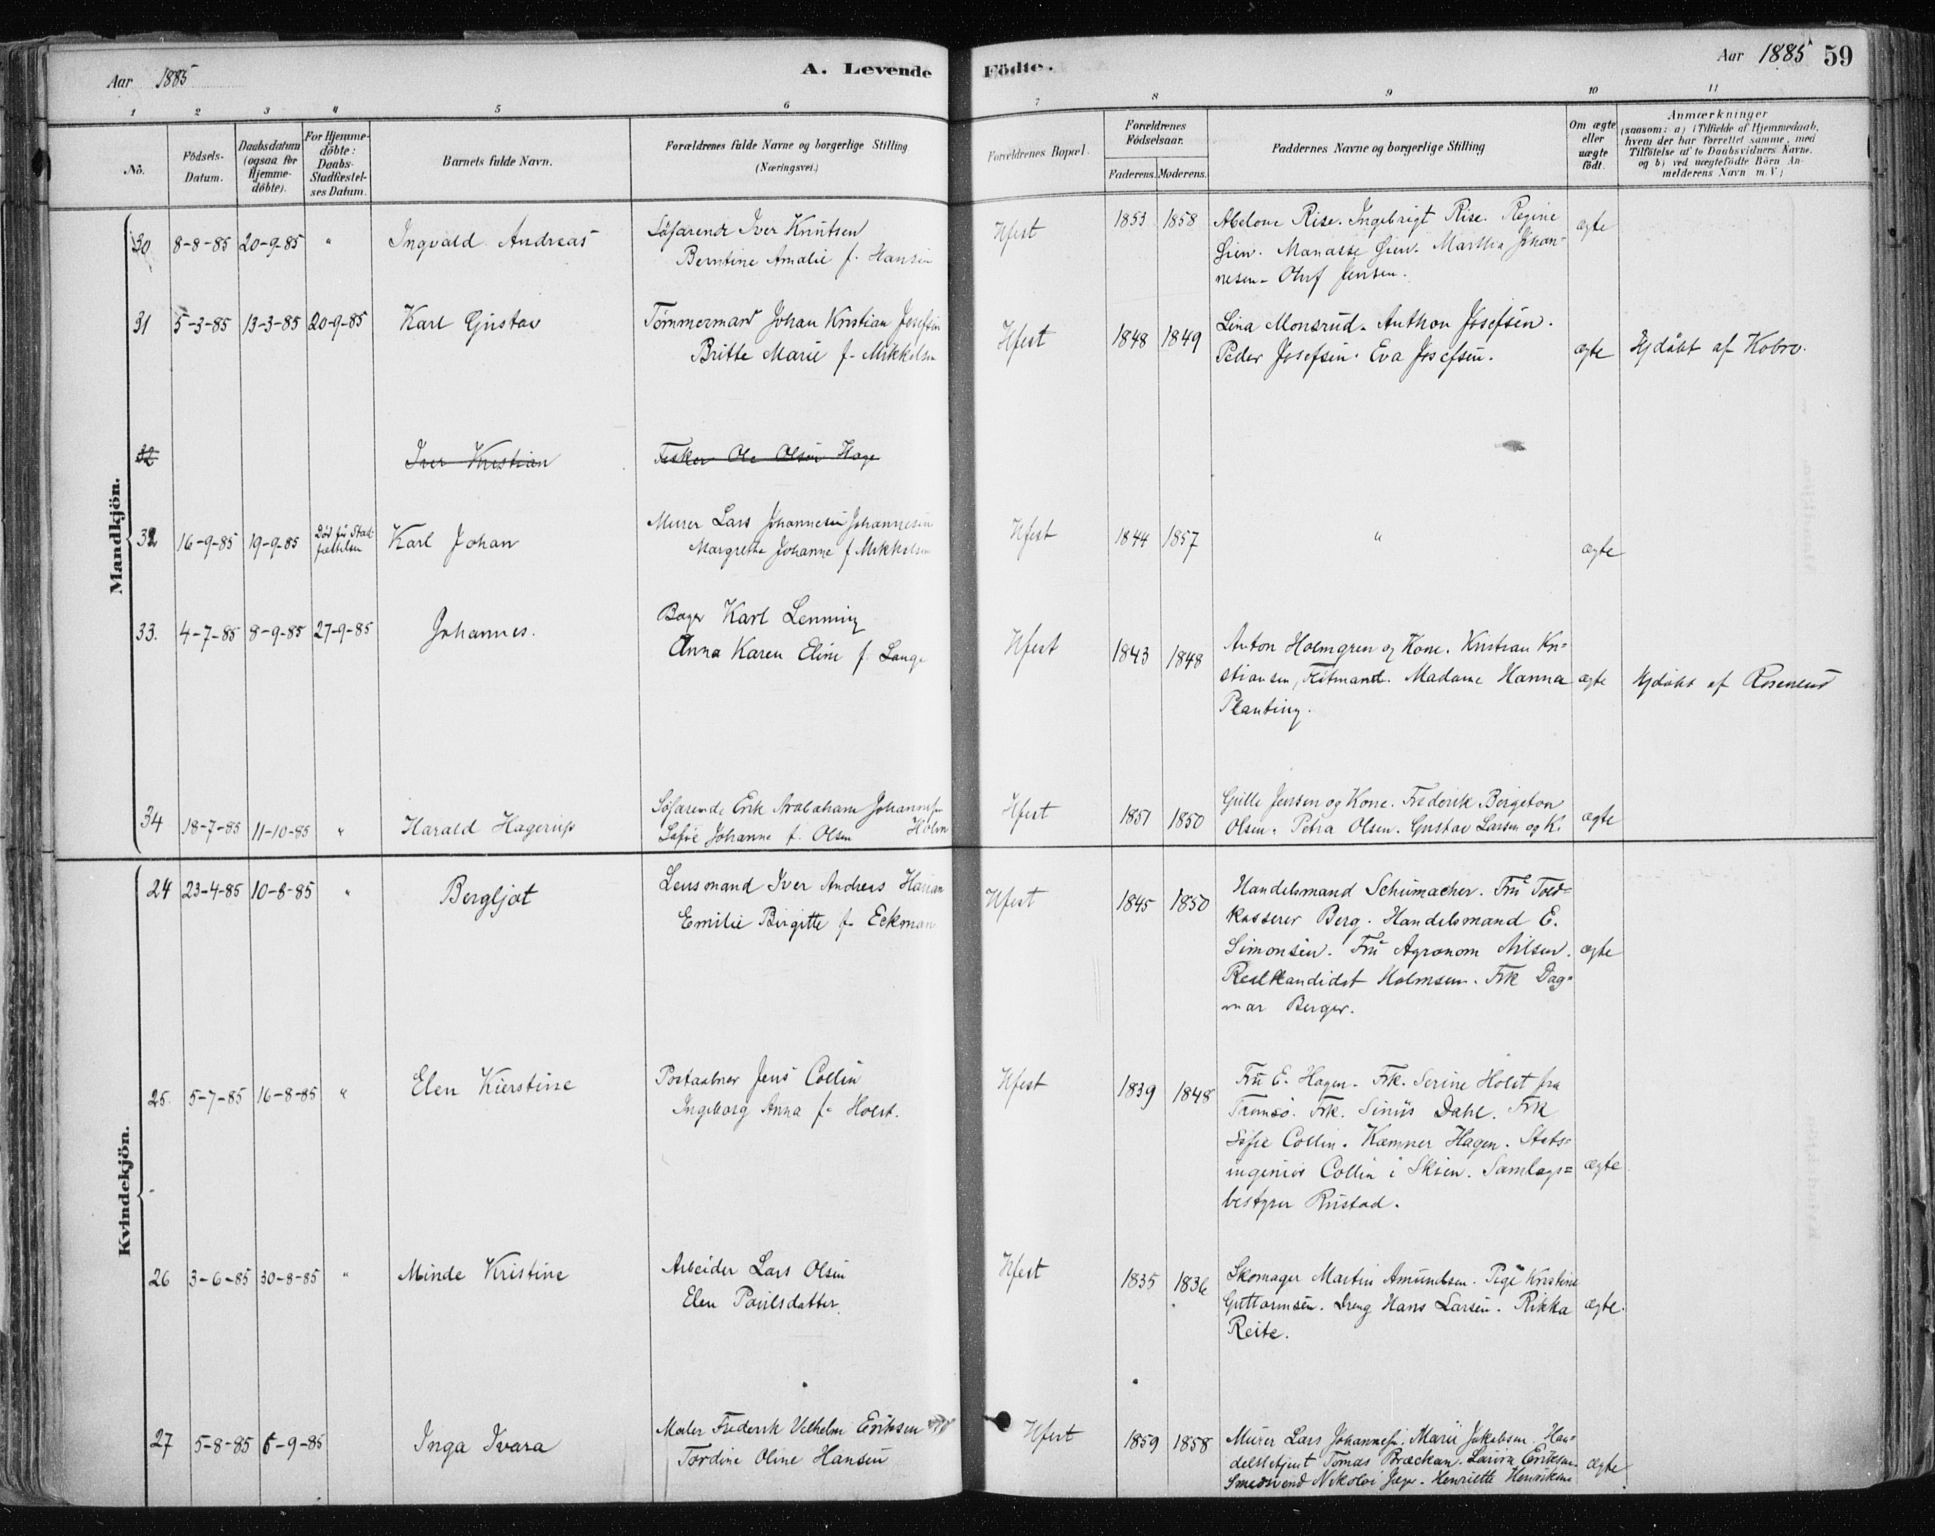 Aar 1885 A. Levende Födte. Aar 1885 59
1 2 3 4 5 6 7 8 9 10 11
No. Födsels-Datum. Daabsdatum (ogsaa for Hjemme-döbte). For Hjemme-döbte: Daabs-Stadfæstel-ses Datum. Barnets fulde Navn. Forældrenes fulde Navne og borgerlige Stilling (Næringsvei.) Forældrenes Bopæl. Forældrenes Födselsaar. Faderens. Moderens. Faddernes Navne og borgerlige Stilling Om ægte eller uægte födt. Anmærkninger
(saasom: a) i Tilfælde af Hjemmedaab,
hvem der har forrettet samme, med
Tilföielse af to Daabsvidners Navne.
og b) ved uægtefödte Börn An-
melderens Navn m. V.)
Mandkjön.
30 8-8-85 20-9-85 " Ingvald Andreas Søfarende Iver Knutsen
Berntine Amalie f. Hansen
Hfest 1853 1858 Abelone Rise. Ingebrigt Rise. Regine
Gien. Manasse Gien. Martha Johan-
nesen. Oluf Jensen. ægte
31 5-3-85 13-3-85 20-9-85 Karl Gustav Tømmermand Johan Kristian Josefsen
Britte Marie f. Mikkelsen
Hfest 1848 1849 Lina Monsrud. Anthon Josefsen.
Peder Josefsen. Eva Josefsen. ægte Hjdøbt af Kobro.
32 Iver Kristian Fisker Ole Olsen Hage
32 16-9-85 19-9-85 Død før Stad-
fæstelsen Karl Johan Murer Lars Johannesen Johannesen
Margrethe Johanne f. Mikkelsen
Hfest 1844 1857 " ægte
33. 4-7-85 8-9-85 27-9-85 Johannes. Bager Karl Lenning
Anna Karen Eline f. Lange
Hfest 1843 1848 Anton Holmgren og Kone. Kristian Kri-
stiansen, Madame Hanna
Planting. ægte Hjdøbt af Rosenlund
34 18-7-85 11-10-85 " Harald Hagerup Søfarende Erik Arabaham Johannesen
Sofie Johanne f. Olsen Holm
Hfest 1851 1850 Gulle Jensen og Kone. Frederik Bergeton
Olsen. Petra Olsen. Gustav Larsen og K. ægte
Kvindekjön.
24 23-4-85 10-8-85 " Bergljot Lensmand Iver Andreas Hansen
Emilie Birgitte f. Eckman
Hfest 1845 1850 Handelsmand Schumacher. Fru Told-
kasserer Berg. Handelsmand E.
Simonsen. Fru Agronom Nilsen.
Realkandidat Holmsen. Frk Dag-
mar Berger. ægte
25. 5-7-85 16-8-85 " Elen Kierstine Postaabner Jens Collin
Ingeborg Anna f. Holst.
Hfest 1839 1848 Fru E. Hagen. Frk. Serine Holst fra
Tromsø. Frk. Dahl. Frk
Sofie Collin. Kæmner Hagen. Stats-
ingeniør Collin i Skien. Samlags-
bestyrer Rustad. ægte
26 3-6-85 30-8-85 " Minde Kristine Arbeider Lars Olsen
Elen Paulsdatter.
Hfest 1835 1836 Skomager Martin Amundsen. Pige Kristine
Guttormsen. Dreng Hans Larsen. Rikka
Reite. ægte.
27 5-8-85 6-9-85 Inga Ivara Maler Frederik Vilhelm Eriksen
Tordine Oline Hansen
Hfest 1859 1858 Murer Lars Johannesen. Marie Jakobsen. Han-
delsbetjent Tomas Brækkan. Lavina Eriksen.
Smedsvend Nikolai Jæger. Henriette Henriksen ægte